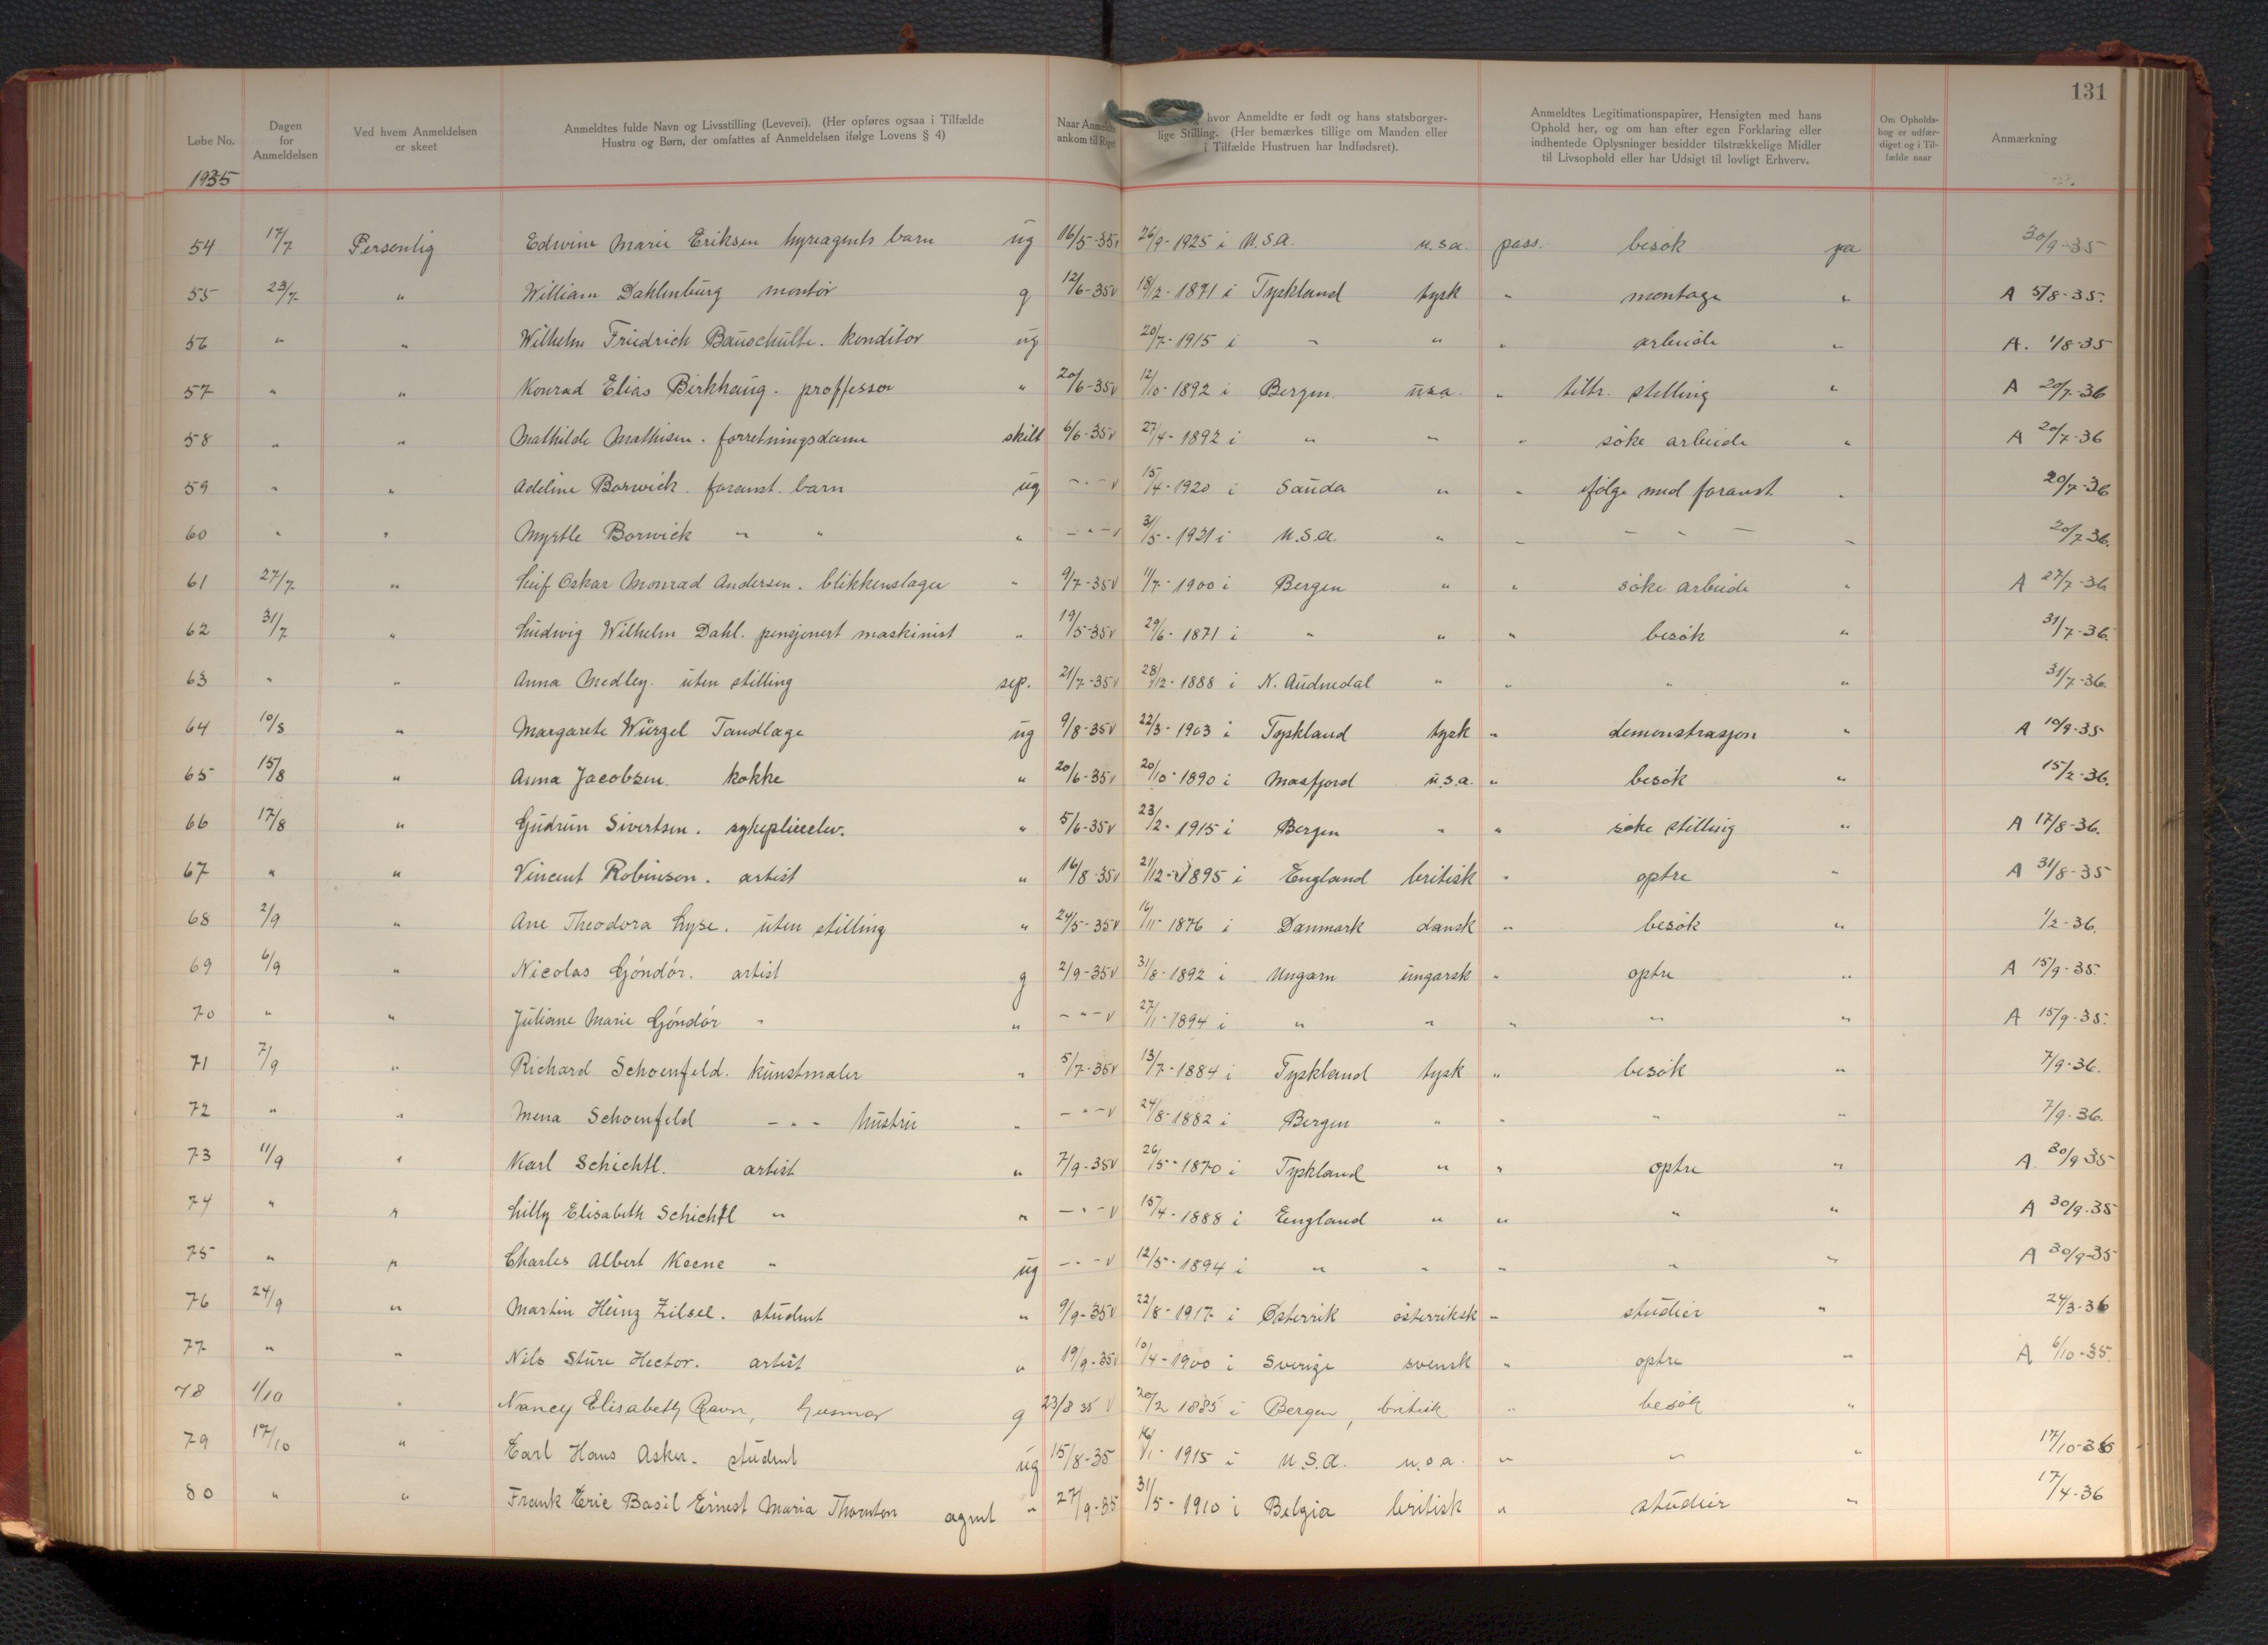 131
Løbe No.
Dagen for Anmeldelsen
Ved hvem Anmeldelsen er skeet
Anmeldtes fulde Navn og Livsstilling (Levevei). (Her opføres ogsaa i Tilfælde Hustru og Børn, der omfattes af Anmeldelsen ifølge Lovens § 4)
Naar Anmeldte ankom til Riget
hvor Anmeldte er født og hans statsborgerlige Stilling. (Her bemærkes tillige om Manden eller i Tilfælde Hustruen har Indfødsret).
Anmeldtes Legitimationspapirer, Hensigten med hans Ophold her, og om han efter egen Forklaring eller indhentede Oplysninger besidder tilstrækkelige Midler til Livsophold eller har Udsigt til lovligt Erhverv.
Om Opholdsbog er udfærdiget og i Tilfælde naar
Anmærkning
1935
54 17/7 Personlig Edwine Marie Eriksen hyreagents barn ug 16/5-35v 26/9-1925 i U.S.A. u.s.a. pass. besøk ja 30/9-35
55 23/7 " William Dahlenburg montør g 12/6-35v 18/2-1871 i Tyskland tysk " montage " A 5/8-35.
56 " " Wilhelm Friedrich Bauschulte. konditor ug 20/7-1915 i " " " arbeide " A. 1/8-35
57 " " Konrad Elias Birkhaug. proffessor " 20/6-35v 12/10-1892 i Bergen. usa. " tiltr. stilling " A 20/7-36
58 " " Mathilde Mathisen. forretningsdame skilt 6/6-35v 27/4-1892 i " " " søke arbeide " A 20/7-36
59 " " Adeline Borwick. foranst. barn ug -"-v 15/4-1920 i Sauda " " ifølge med foranst. " 20/7-36
60 " " Myrtle Borwick " " " -"-v 3/5-1921 i U.S.A. " - - " - - 20/7 36.
61 27/7 " Leif Oskar Monrad Andersen. blikkenslager " 9/7-35v 11/7-1900 i Bergen " " søke arbeide " A 27/7-36
62 31/7 " Ludwig Wilhelm Dahl. pensjonert maskinist " 19/5-35v 29/6-1871 i " " " besøk " 31/7-36.
63 " " Anna Medley. uten stilling sep. 21/7-35v 28/12-1888 i N. Audnedal " " " " 31/7-36.
64 10/8 " Margarete Würzel Tandlæge ug 9/8-35v 22/3-1903 i Tyskland tysk " demonstrasjon " A 10/9-35
65 15/8 " Anna Jacobsen. kokke " 20/6-35v 20/10-1890 i Masfjord u.s.a. " besøk " 15/2-36.
66 17/8 " Gudrun Sivertsen. sykepleieelev. " 5/6-35v 23/2-1915 i Bergen " " søke stilling " A 17/8-36.
67 " " Vincent Robinson. artist " 16/8-35v 21/12-1895 i England britisk " optre " A 31/8-35
68 2/9 " Ane Theodora Lyse. uten stilling " 24/5-35v 16/11-1876 i Danmark dansk " besøk " 1/2-36.
69 6/9 " Nicolas Góndór. artist g 2/9-35v 31/8-1892 i Ungarn ungarsk " optre " A 15/9-35.
70 " " Juliane Marie Góndór " " -"-v 27/1-1894 i " " " " " A 15/9-35.
71 7/9 " Richard Schoenfeld. kunstmaler " 5/7-35v 13/7-1884 i Tyskland tysk " besøk " 7/9-36.
72 " " Mena Schoenfeld -"- hustru " -"-v 24/8-1882 i Bergen " " " " 7/9-36.
73 11/9 " Karl Schichtl. artist " 7/9-35v 26/5-1870 i Tyskland " " optre " A. 30/9-35
74 " " Lilly Elisabeth Schichtl " " -"-v 15/4-1888 i England " " " " A 30/9-35
75 " " Charles Albert Keene " ug -"-v 12/5-1894 i " " " " " A 30/9-35
76 24/9 " Martin Heinz Zilsel. student " 9/9-35v 22/8-1917 i Østerrik østerriksk " studier " 24/3-36
77 " " Nils Sture Hector. artist " 19/9-35v 10/4-1900 i Sverige svensk " optre " A 6/10-35.
78 1/10 " Nancy Elisabeth Ravn, Husmor g 23/8 35 v 20/2 1885 i Bergen, britisk " besøk "
79 17/10 " Earl Hans Asker. student ug 15/8-35 1915 i U.S.A. u.s.a. " " " 17/10-36
80 " " Frank Eric Basil Ernest Maria Thornton agent " 27/9-35 31/5-1910 i Belgia britisk " studier " 17/4-36